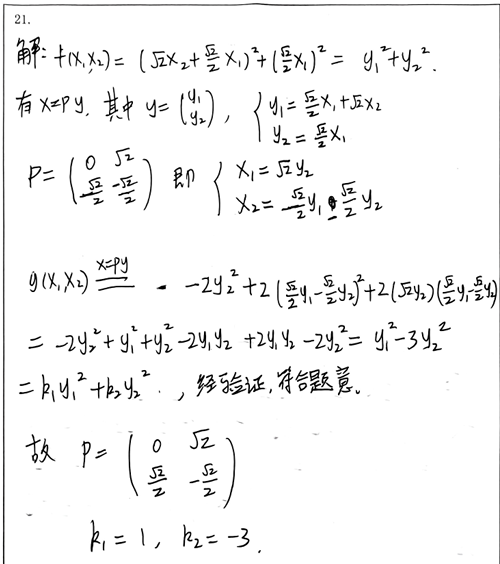 21.
解: f(x₁,x₂) = (√2x₂+√2/2 x₁)²+(√2/2 x₁)² = y₁²+y₂².
有 x=Py, 其中 y=(y₁ y₂), { y₁=√2/2 x₁+√2x₂
y₂=√2/2 x₁
P=(0 √2 √2/2 -√2/2) 即 { x₁=√2y₂
x₂=√2/2 y₁-√2/2 y₂
g(x₁,x₂) x=Py == -2y₂²+2(√2/2 y₁-√2/2 y₂)²+2(√2y₂)(√2/2 y₁-√2/2 y₂)
= -2y₂²+y₁²+y₂²-2y₁y₂+2y₁y₂-2y₂² = y₁²-3y₂²
=k₁y₁²+k₂y₂², 经验证,符合题意。
故 P=(0 √2 √2/2 -√2/2)
k₁=1, k₂=-3.